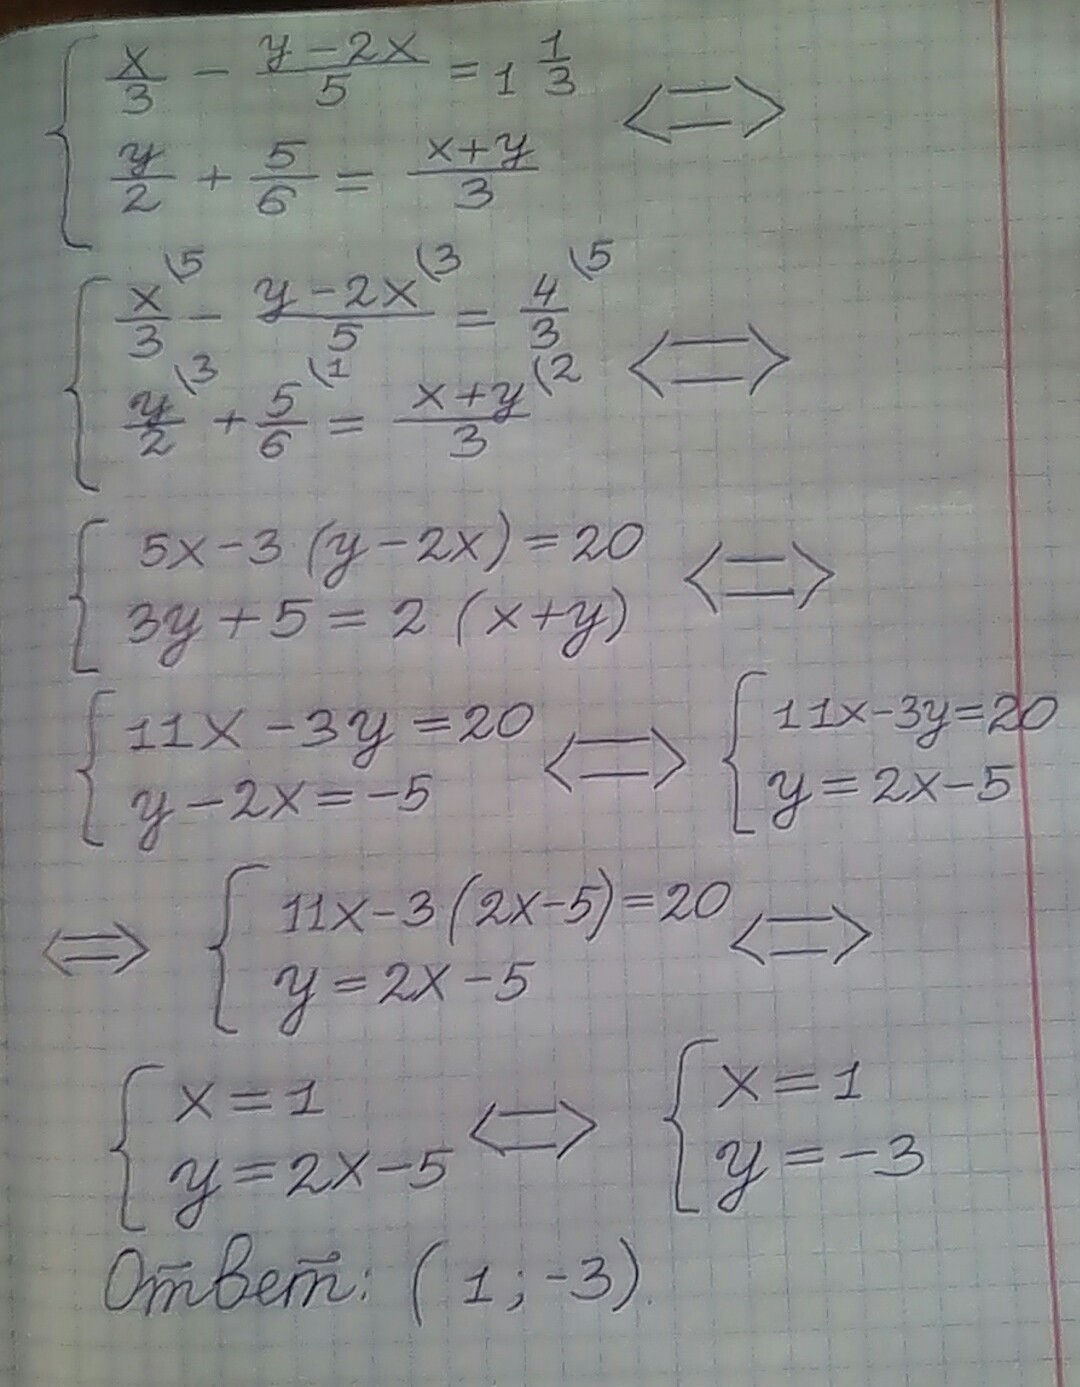 { x/3 - (y-2x)/5 = 1 1/3
{ y/2 + 5/6 = (x+y)/3 <=>
{ x/3 \5 - (y-2x)/5 \3 = 4/3 \5
{ y/2 \3 + 5/6 \1 = (x+y)/3 \2 <=>
{ 5x-3(y-2x)=20
{ 3y+5=2(x+y) <=>
{ 11x-3y=20 <=> { 11x-3y=20
{ y-2x=-5 { y=2x-5
<=> { 11x-3(2x-5)=20 <=>
{ y=2x-5
{ x=1 <=> { x=1
{ y=2x-5 { y=-3
Ответ: (1; -3).